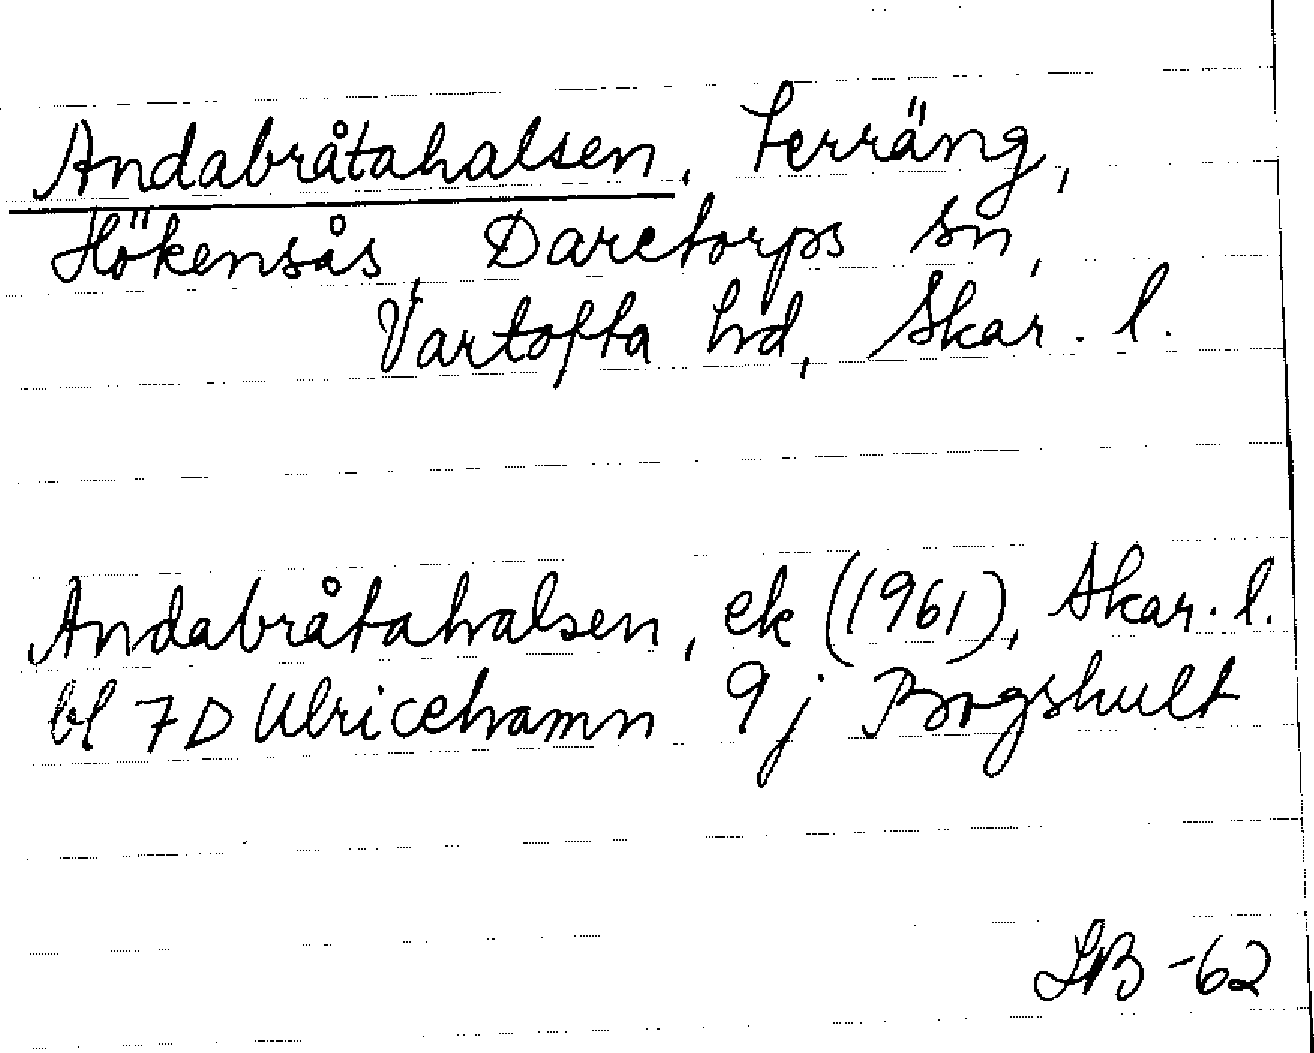 Andabråtahalsen, terräng,
Hökensås, Daretorps sn,
Vartofta hd, Skar. l.
Andabråtahalsen, ek (1961), Skar. l.
bl 7D Ulricehamn 9j Bogshult
LB -62